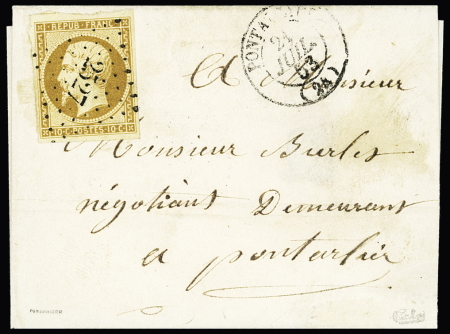 REPUB. FRANC.
10.C. POSTES. 10.C.
21
JUIL.
53
(24)
A Monsieur
Monsieur Burles
négotiant Demeurant
a pontarlier